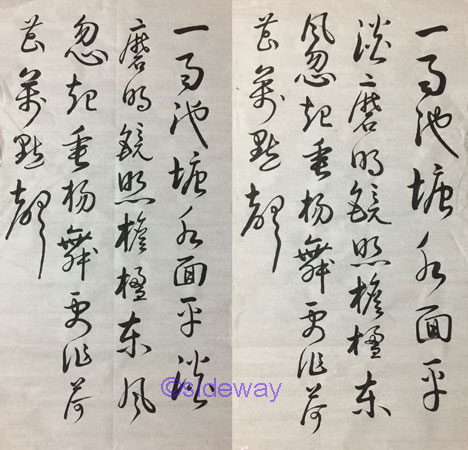 一雨池塘水面平
淡磨明鏡照檐楹东
风忽起垂杨舞更作荷
芯萬點聲
一雨池塘水面平淡
磨明鏡照檐楹东风
忽起垂杨舞更作荷
芯萬點聲
©sideway